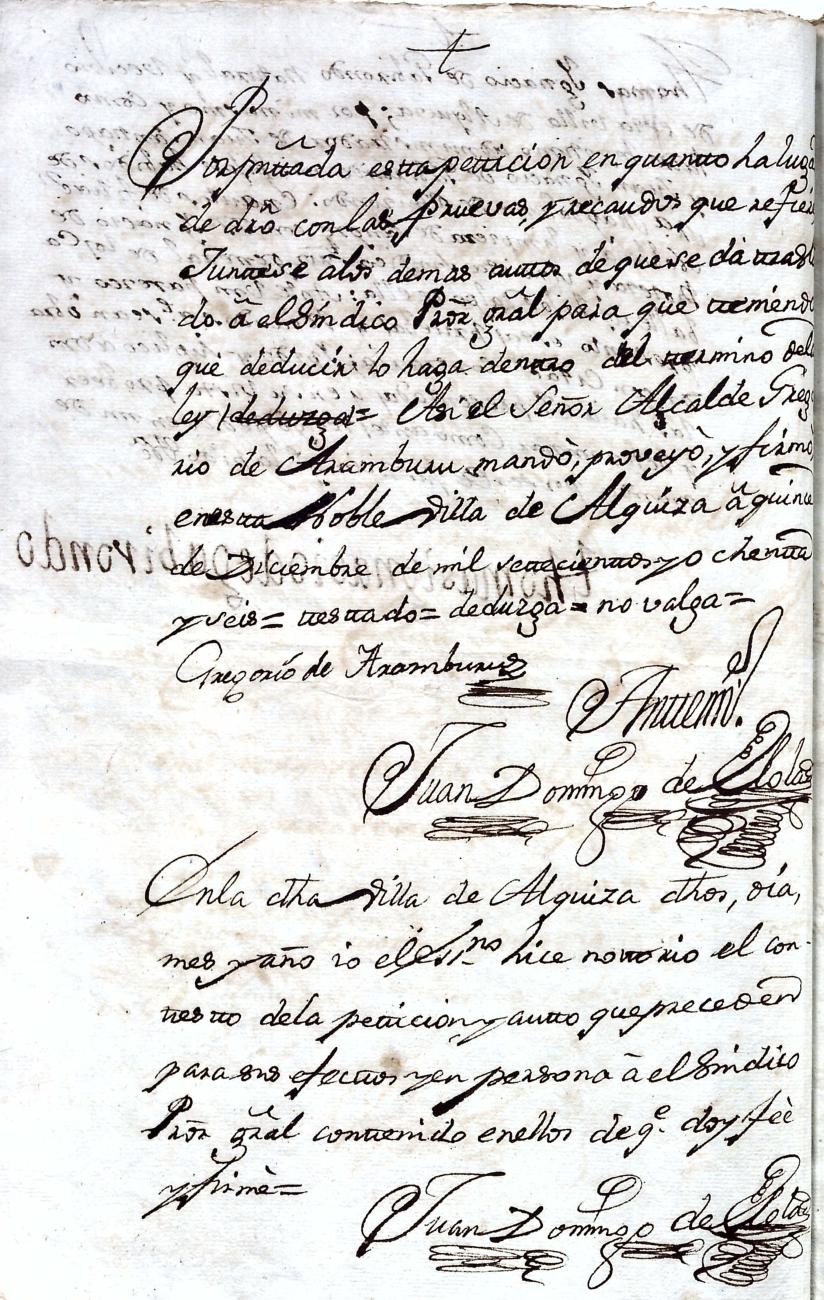 Por presentada estta petticion en quantto ha lugar
de dro con las pruevas, y recaudos que refiere
Junttese â los demas auttos de que se dà ttrasla
do â el Sindico Pror gral para que tteniendo
que deducir lo haga denttro del ttermino dela
ley (deduzga)= Asi el Señor Alcalde Grego
rio de Aramburu mandò, proveyò, y firmò
en estta Noble Villa de Alquiza â quince
de Diciembre de mil settecienttos y ochentta
y seis= ttesttado= deduzga= no valga=
Gregorio de Aramburu
Anttemi.
Juan Domingo de
En la dtha Villa de Alquiza dthos, dia,
mes y año io el Essno hice nottorio el con-
ttestto dela petticion, y autto que preceden
para sus efecttos y en persona â el Sindico
Pror gral conttenido en ellos de qe. doy fèe
y firmè=
Juan Domingo de